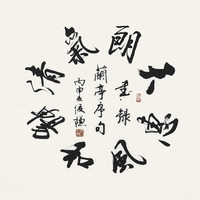 天朗氣清
惠風和暢
書錄
蘭亭序句
丙申